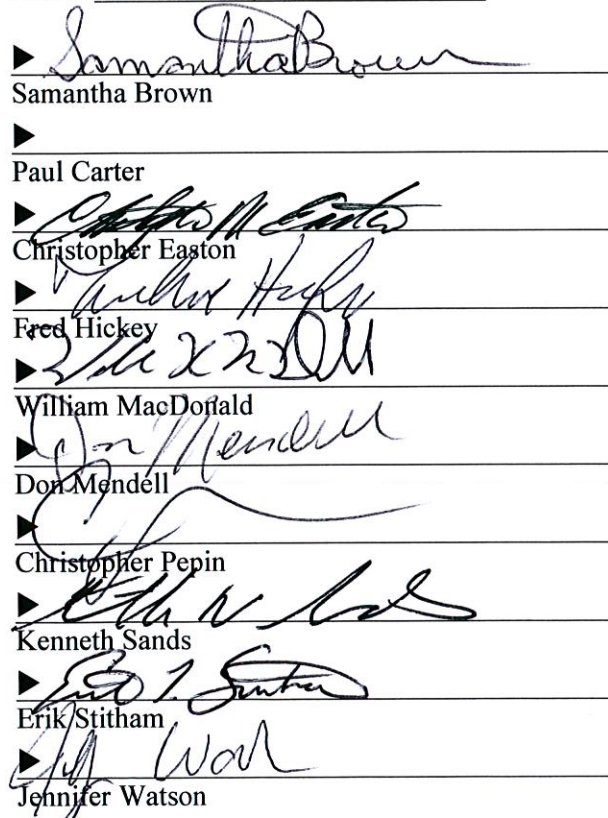 Samantha Brown
Samantha Brown
Paul Carter
Christopher M Easton
Christopher Easton
Fred Hickey
William MacDonald
Don Mendell
Don Mendell
Christopher Pepin
Kenneth Sands
Erik Stitham
Jennifer Watson